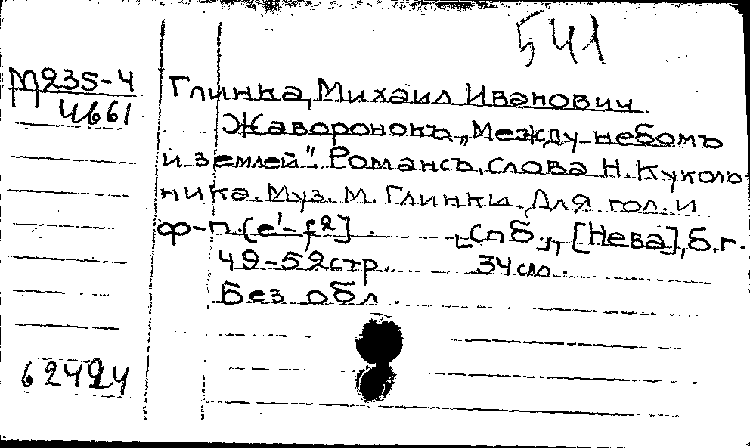 541
М235-4
4661
Глинка, Михаил Иванович
Жаворонокъ „Между небомъ
и землей". Романсъ, слова Н. Куколь-
ника. Муз. М. Глинки. Для гол. и
ф-п. (e¹-f²]. [Спб.], [Нева], б.г.
49-52 стр. 34 см.
Без обл.
62424